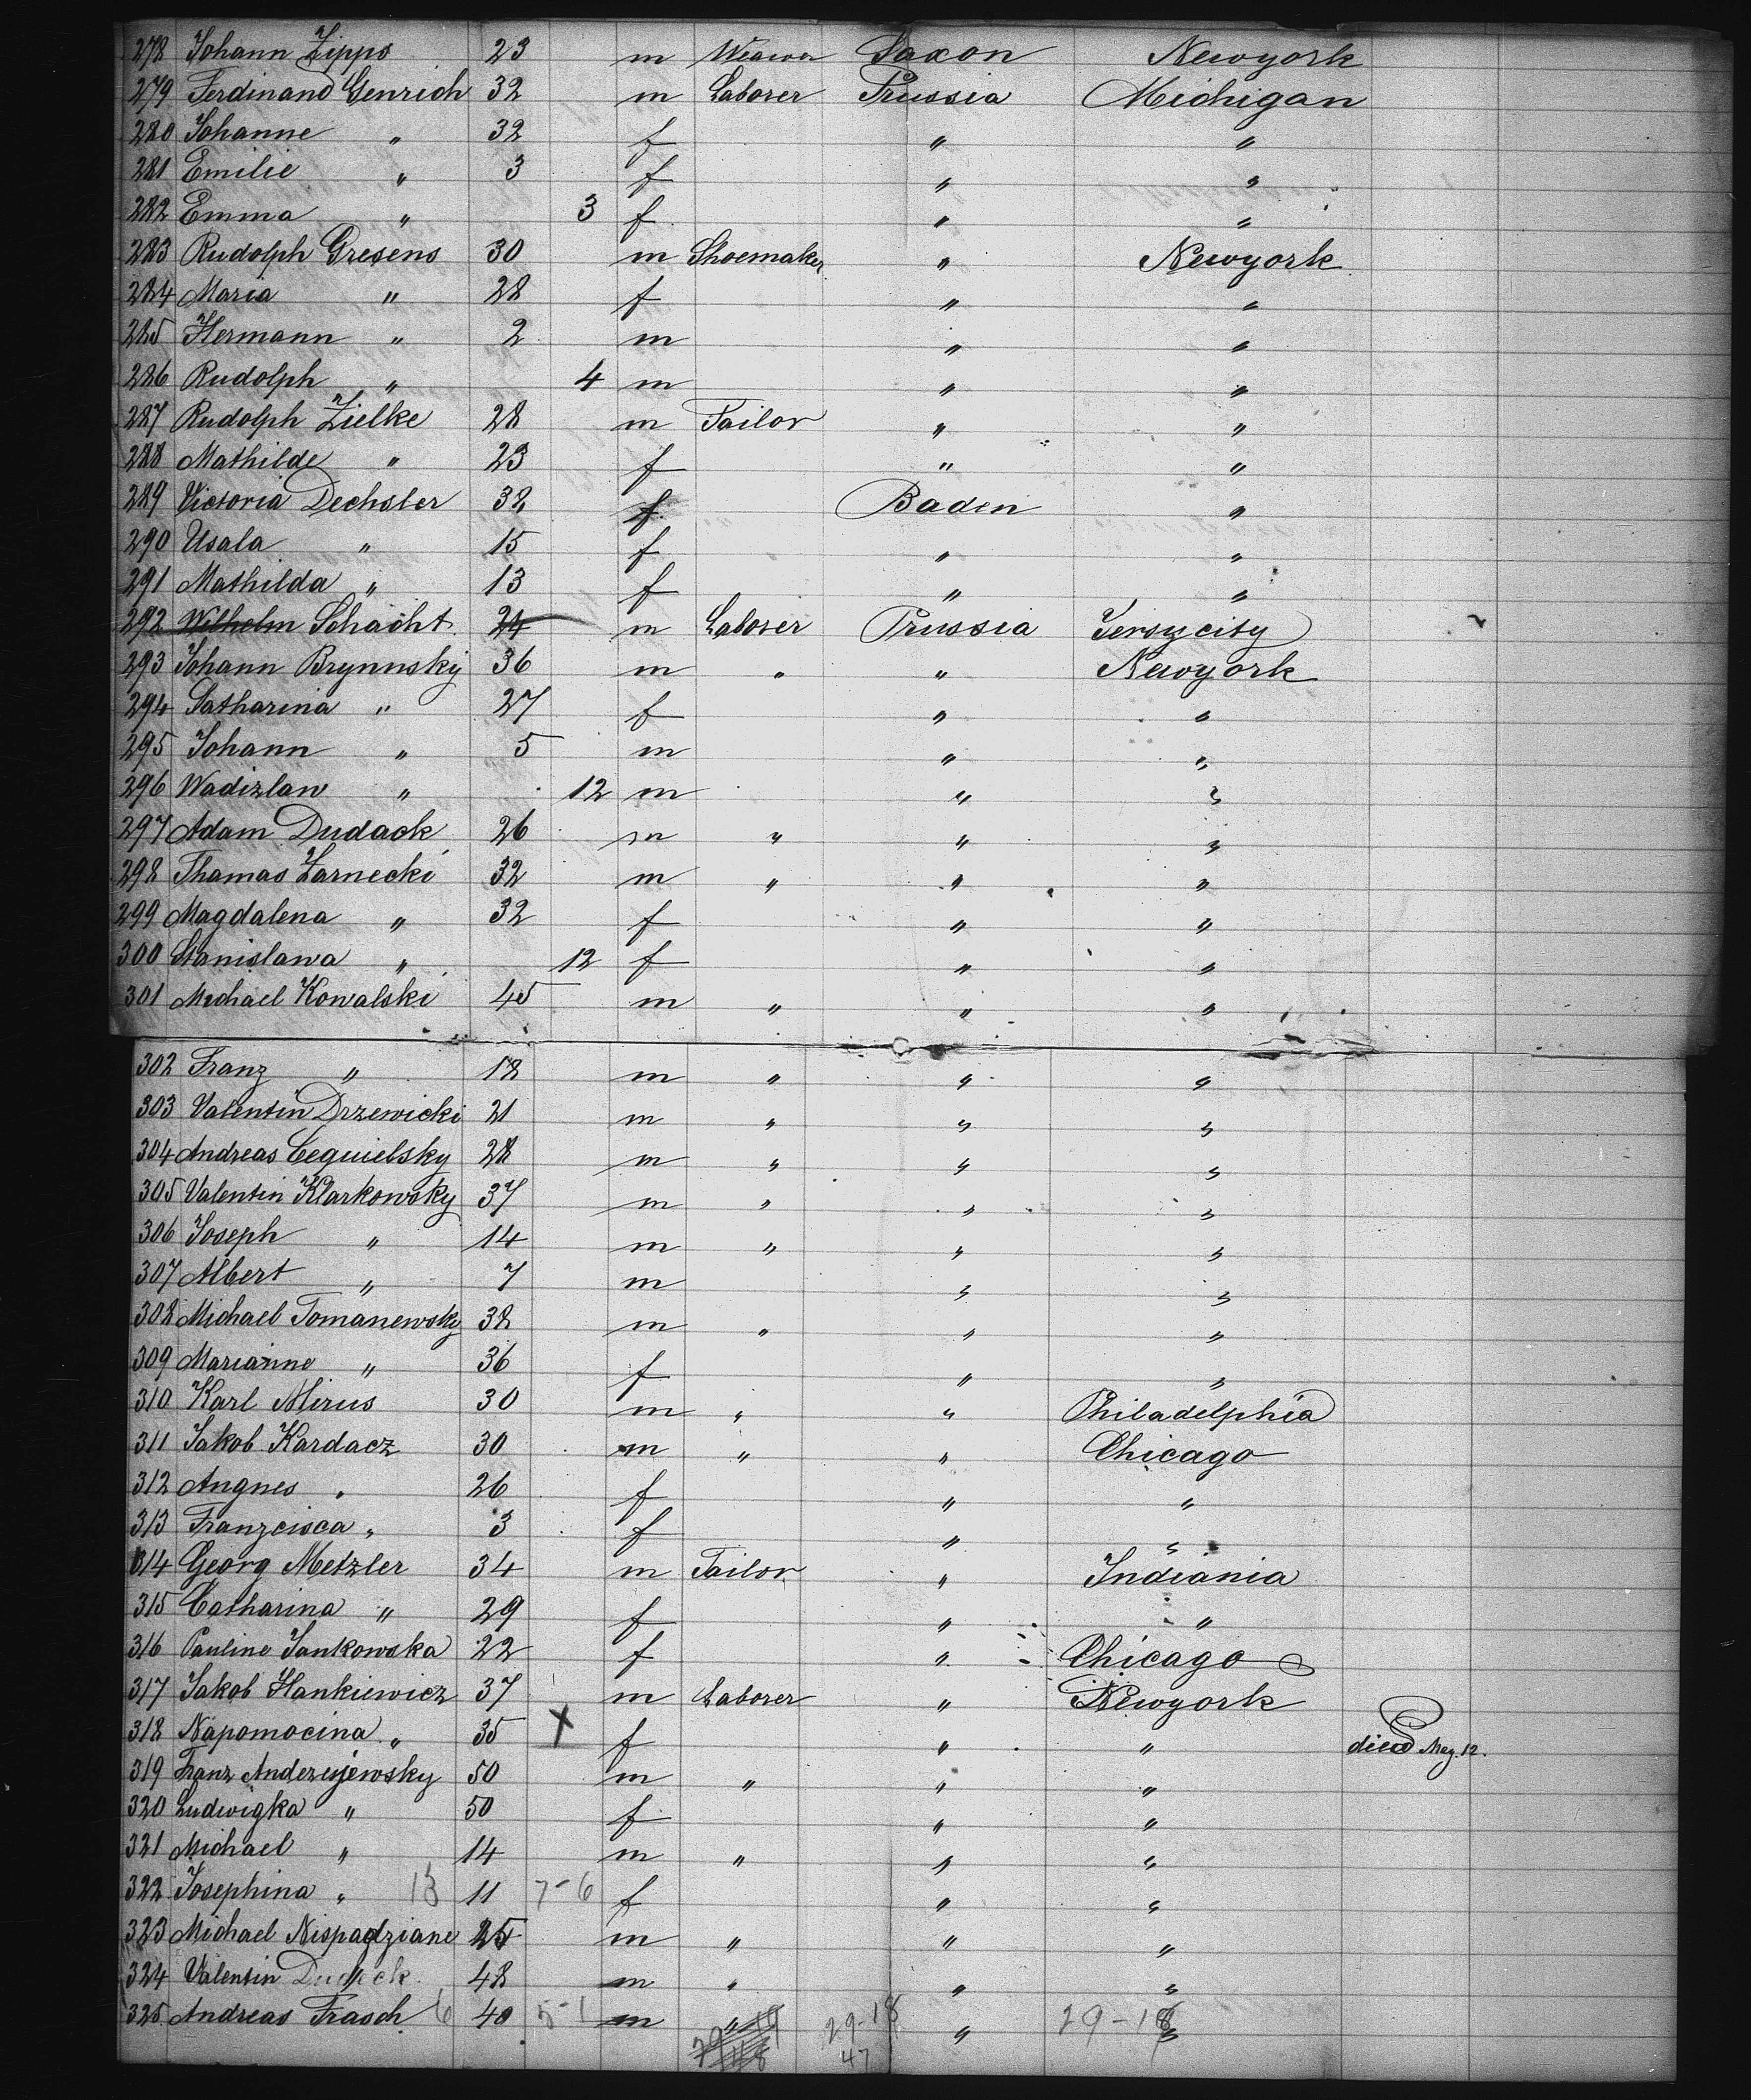 278 Johann Zipps 23 m Weawer Saxon Newyork
279 Ferdinand Genrich 32 m Laborer Prussia Michigan
280 Johanne " 32 f " "
281 Emilie " 3 f " "
282 Emma " 3 f " "
283 Rudolph Gresens 30 m Shoemaker " Newyork
284 Maria " 28 f " "
285 Hermann " 2 m " "
286 Rudolph " 4 m " "
287 Rudolph Zielke 28 m Tailor " "
288 Mathilde " 23 f " "
289 Victoria Dechsler 38 f Baden "
290 Usala " 15 f " "
291 Mathilda " 13 f " "
292 Wilhelm Schacht 24 m Laborer Prussia Jersycity
293 Johann Brynnsky 36 m " " Newyork
294 Catharina " 27 f " "
295 Johann " 5 m " "
296 Wadizlaw " 12 m " "
297 Adam Dudack 26 m " " "
298 Thamas Zarnecki 32 m " " "
299 Magdalena " 32 f " "
300 Stanislawa " 12 f " "
301 Michael Kowalski 45 m " " "
302 Franz " 18 m " " "
303 Valentin Drzewicki 21 m " " "
304 Andreas Cequielsky 28 m " " "
305 Valentin Klarkowsky 37 m " " "
306 Joseph " 14 m " " "
307 Albert " 7 m " "
308 Michael Tomanewsky 38 m " " "
309 Marianne " 36 f " "
310 Karl Mirus 30 m " " Philadelphia
311 Jakob Kardacz 30 m " " Chicago
312 Angnes " 26 f " "
313 Franzcisca " 3 f " "
314 Georg Metzler 34 m Tailor " Indiania
315 Catharina " 29 f " "
316 Pauline Jankowska 22 f " Chicago
317 Jakob Hankiewicz 37 m Laborer " Newyork
318 Napomocina " 35 X f " " died May. 12.
319 Franz Anderzijewsky 50 m " " "
320 Ludwigka " 50 f " "
321 Michael " 14 m " " "
322 Josephina " 13 11 7-6 f " "
323 Michael Nispadziane 25 m " " "
324 Valentin Dudeck 48 m " " "
325 Andreas Frasch 6 40 5-1 m " 29-18 " 29-18 "
47